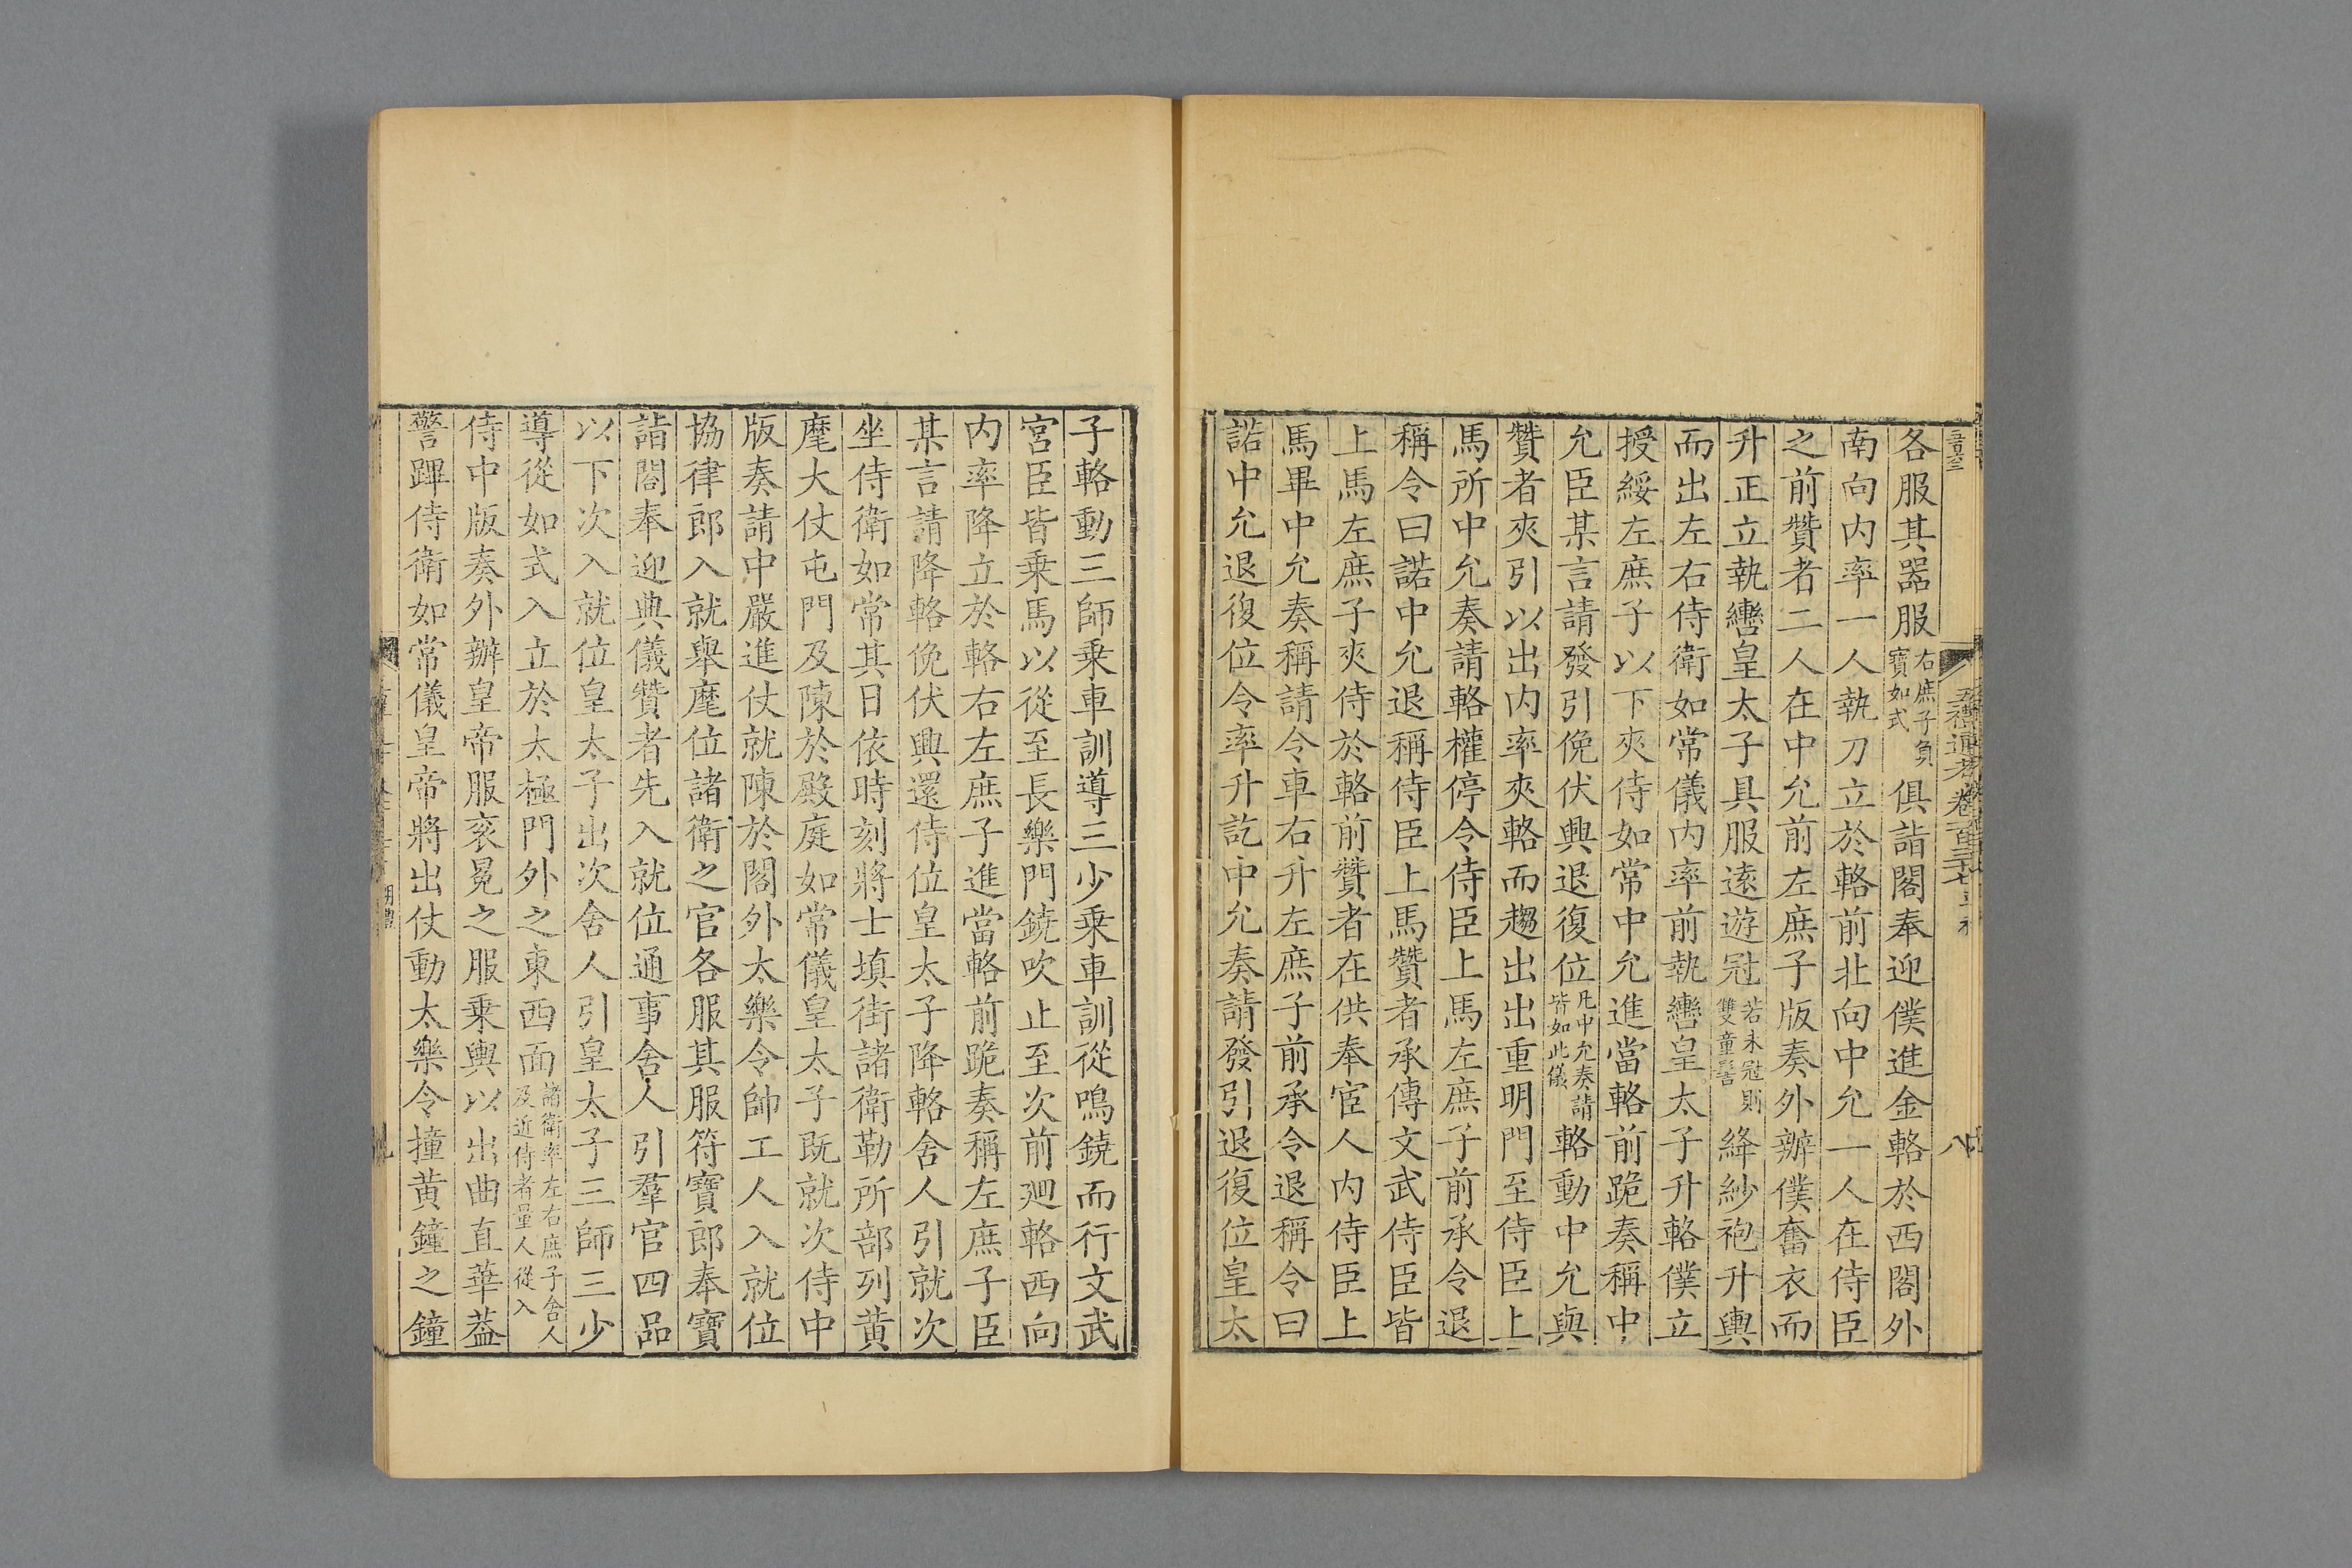 各服其器服右庶子負寶如式俱詣閤奉迎僕進金輅於西閤外
南向内率一人執刀立於輅前北向中允一人在侍臣
之前贊者二人在中允前左庶子版奏外辦僕奮衣而
升正立執轡皇太子具服遠遊冠若未冠則雙童髻絳紗袍升輿
而出左右侍衛如常儀内率前執轡皇太子升輅僕立
授綏左庶子以下夾侍如常中允進當輅前跪奏稱中
允臣某言請發引俛伏興退復位凡中允奏請皆如此儀輅動中允與
贊者夾引以出内率夾輅而趨出出重明門至侍臣上
馬所中允奏請輅權停令侍臣上馬左庶子前承令退
稱令曰諾中允退稱侍臣上馬贊者承傳文武侍臣皆
上馬左庶子夾侍於輅前贊者在供奉宦人内侍臣上
馬畢中允奏稱請令車右升左庶子前承令退稱令曰
諾中允退復位令率升訖中允奏請發引退復位皇太
子輅動三師乗車訓導三少乗車訓從鳴鐃而行文武
宮臣皆乗馬以從至長樂門鐃吹止至次前廻輅西向
内率降立於輅右左庶子進當輅前跪奏稱左庶子臣
某言請降輅俛伏興還侍位皇太子降輅舍人引就次
坐侍衛如常其日依時刻將士填街諸衛勒所部列黄
麾大仗屯門及陳於殿庭如常儀皇太子既就次侍中
版奏請中嚴進仗就陳於閤外太樂令帥工人入就位
協律郎入就舉麾位諸衛之官各服其服符寶郎奉寶
詣閤奉迎典儀贊者先入就位通事舍人引羣官四品
以下次入就位皇太子出次舍人引皇太子三師三少
導從如式入立於太極門外之東西面諸衛率左右庶子舍人及近侍者量人從入
侍中版奏外辦皇帝服衮冕之服乗輿以出曲直華葢
警蹕侍衛如常儀皇帝將出仗動太樂令撞黄鐘之鐘